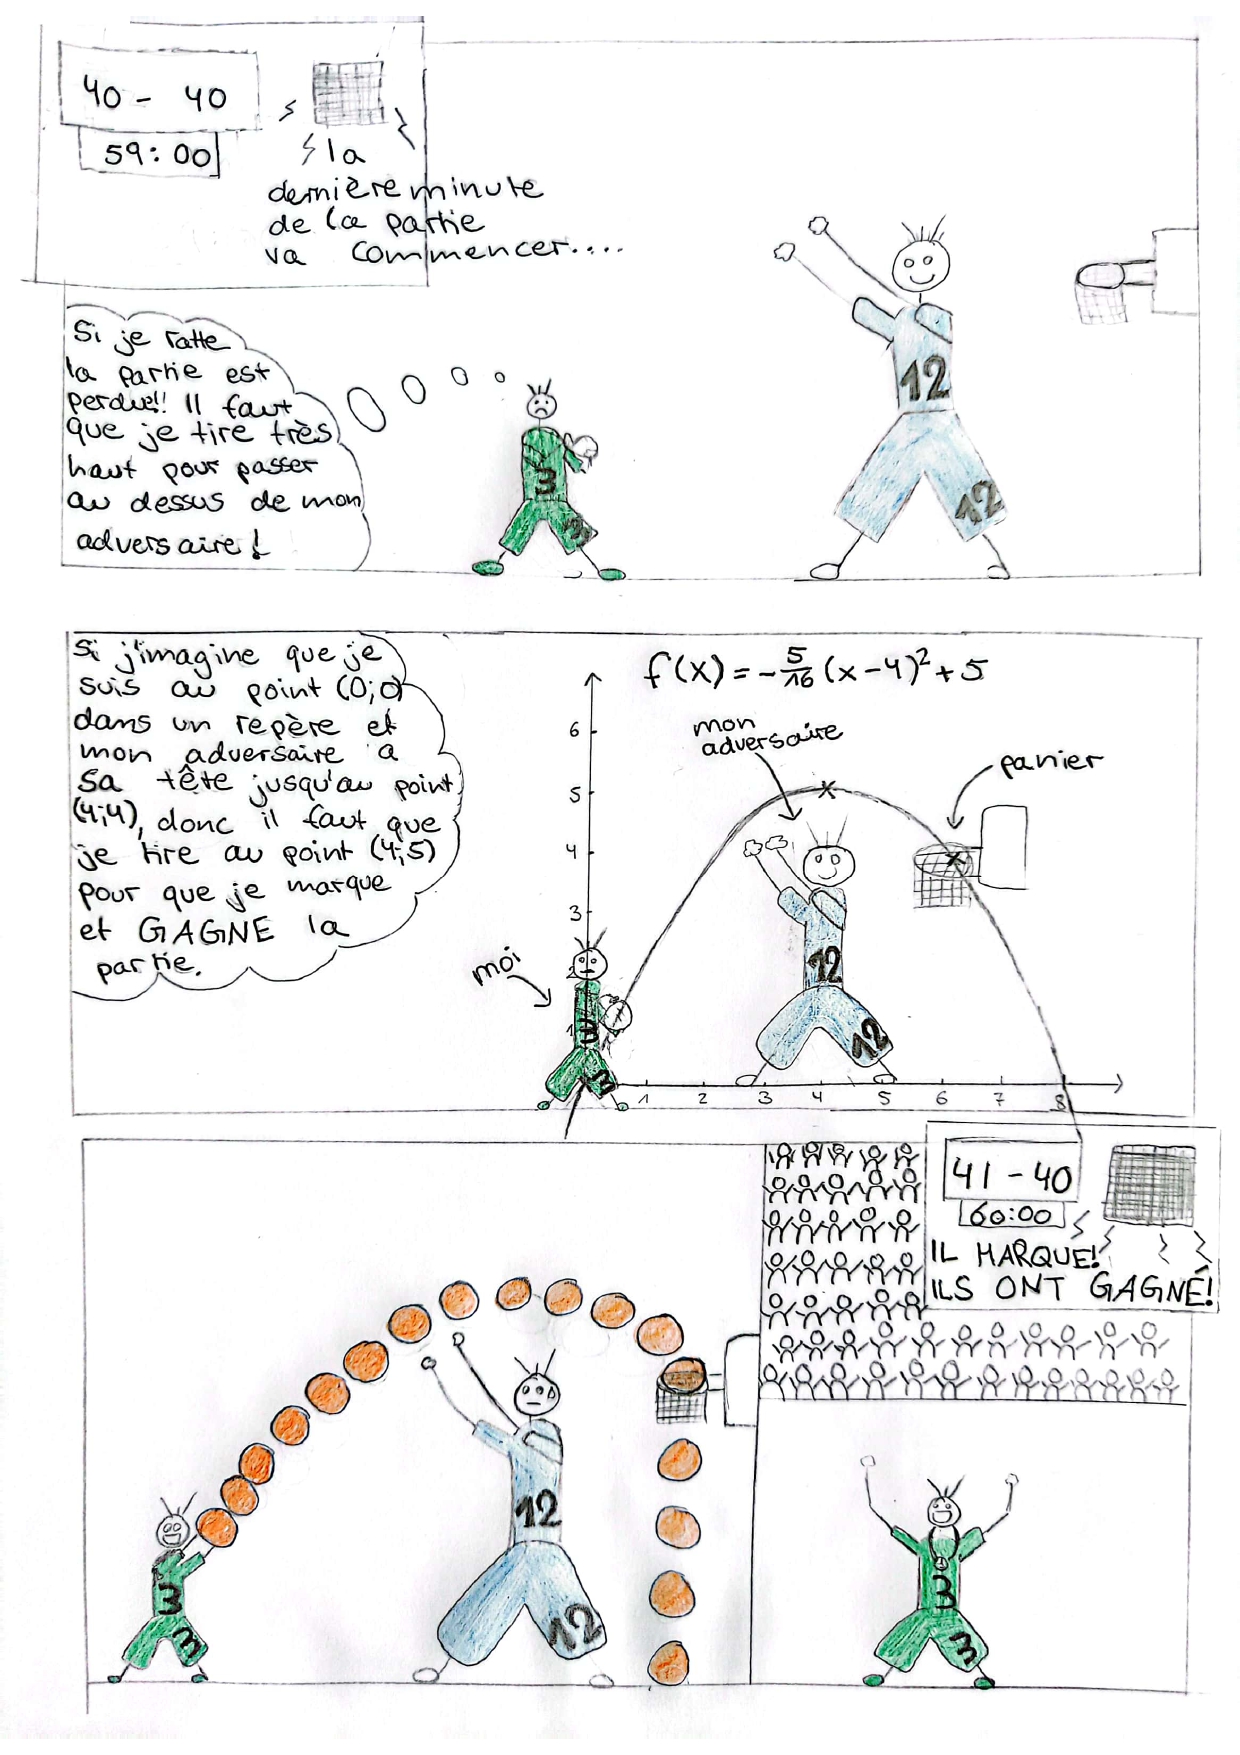 40 - 40
59:00
la
dernière minute
de la partie
va commencer....
Si je ratte
la partie est
perdue!! Il faut
que je tire très
haut pour passer
au dessus de mon
adversaire !
3
3
12
12
Si j'imagine que je
suis au point (0;0)
dans un repère et
mon adversaire a
sa tête jusqu'au point
(4;4), donc il faut que
je tire au point (4;5)
pour que je marque
et GAGNE la
partie.
f(x) = -5/16 (x-4)² + 5
mon
adversaire
panier
moi
6
5
4
3
2
1
1 2 3 4 5 6 7 8
3
3
12
12
41 - 40
60:00
IL MARQUE!
ILS ONT GAGNÉ!
3
3
12
12
3
3